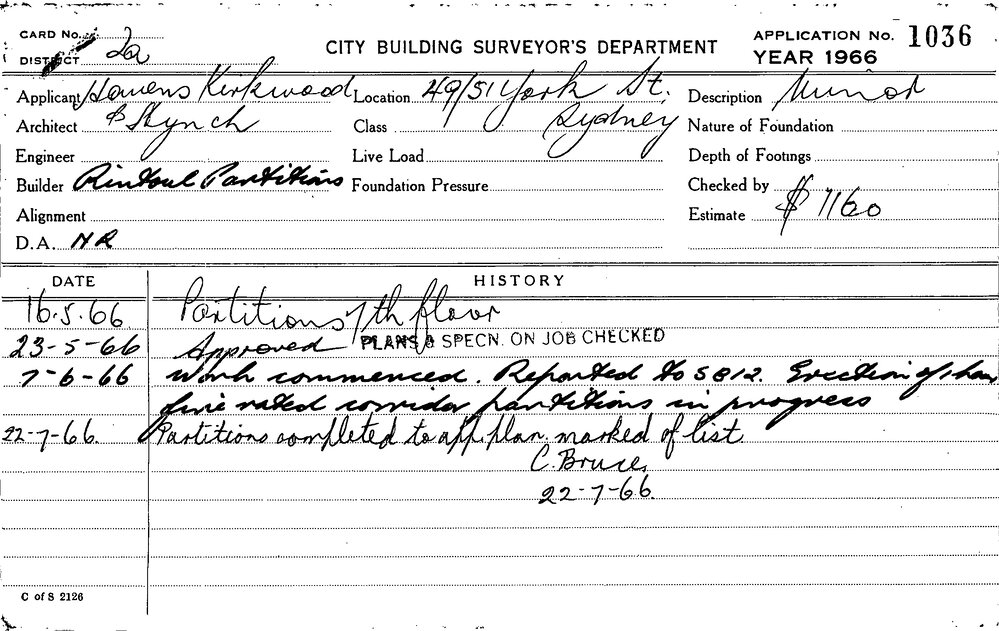 CARD No.
DISTRICT 2a
CITY BUILDING SURVEYOR'S DEPARTMENT
APPLICATION No. 1036
YEAR 1966
Applicant Kirkwood
Location 49/51 York St.
Description Minor
Architect & Kynch
Class Sydney
Nature of Foundation
Engineer
Live Load
Depth of Footings
Builder Rintoul Partitions
Foundation Pressure
Checked by
Alignment
Estimate $ 1160
D.A. NR
DATE
HISTORY
16.5.66 Partitions 7th floor
23-5-66 Approved PLANS & SPECN. ON JOB CHECKED
7-6-66 Work commenced. Reported to S812. Erection of 1 hour
fire rated corridor partitions in progress
22-7-66. Partitions completed to app. plan. marked of list
C. Bruce.
22-7-66.
C of S 2126